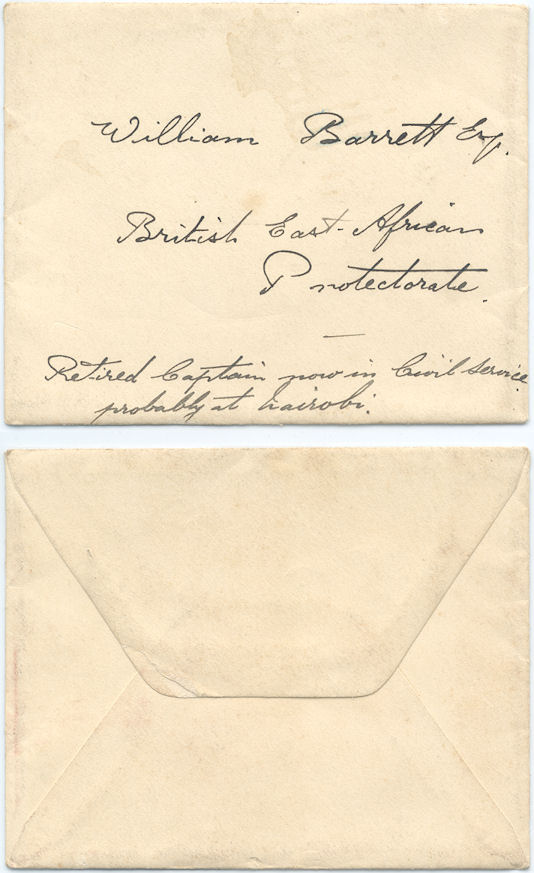 William Barrett Esq.
British East-African
Protectorate.
Retired Captain now in Civil Service
probably at Nairobi.